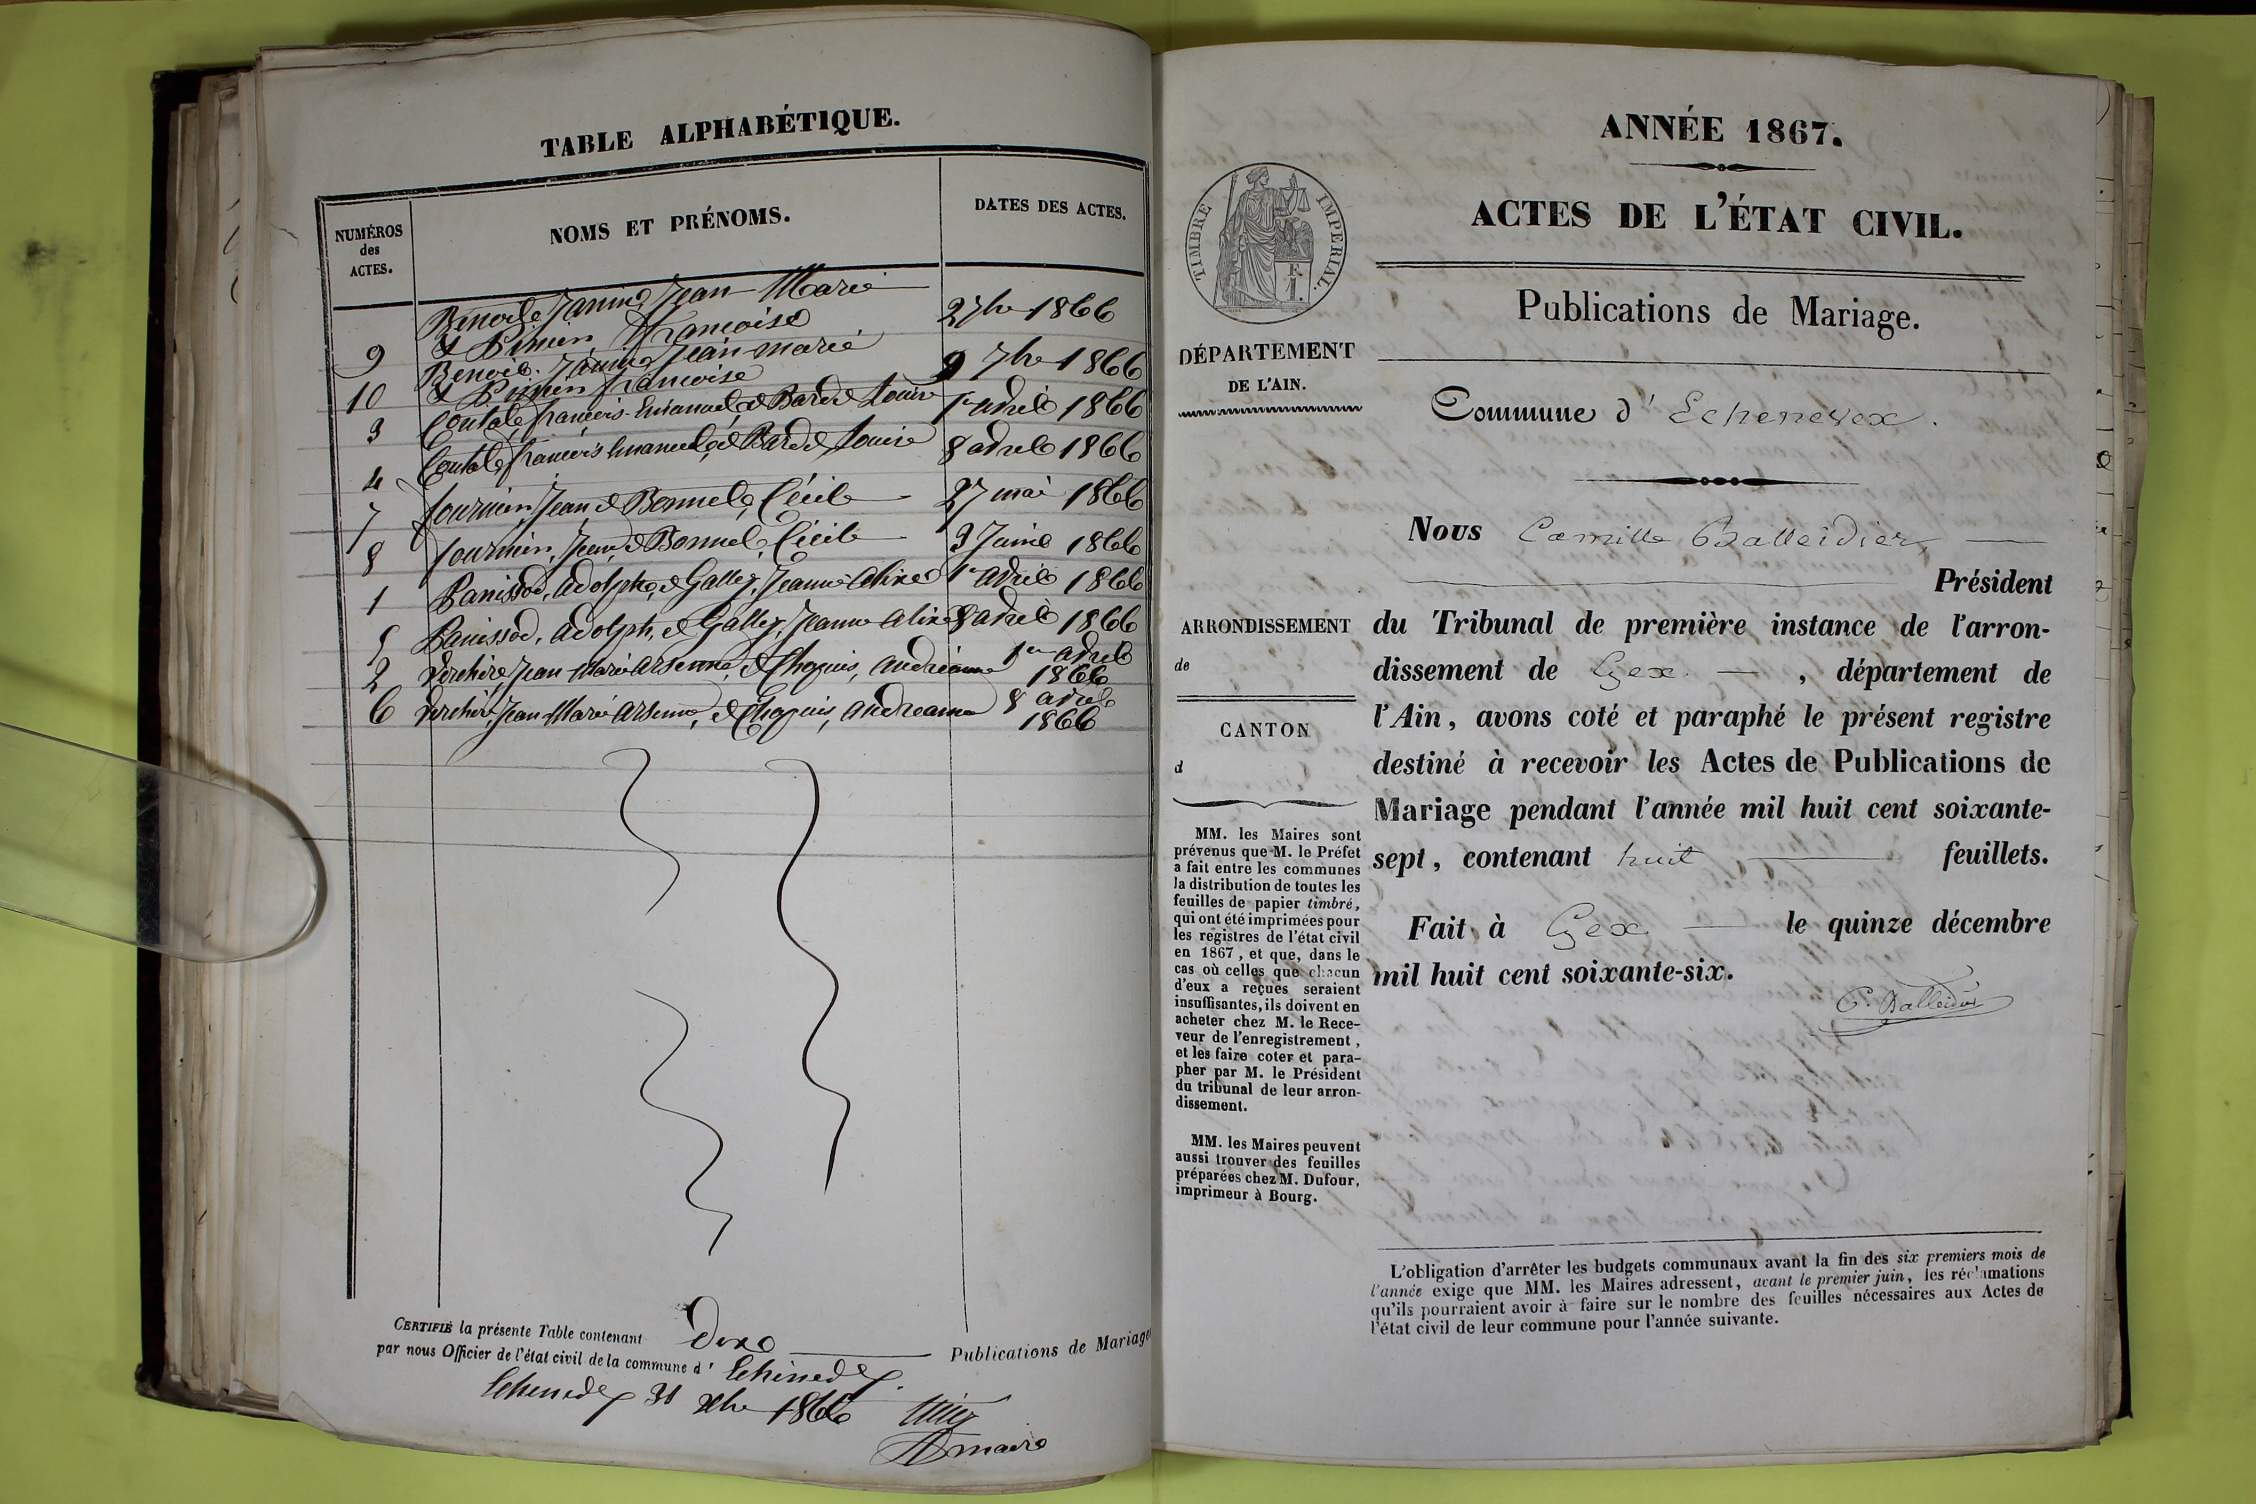 TABLE ALPHABÉTIQUE.
NUMÉROS
des
ACTES.
NOMS ET PRÉNOMS.
DATES DES ACTES.
Benoit Janin Jean Marie
9 & Françoise 2 7bre 1866
Benoit Janin Jean marie
10 & françoise 9 7bre 1866
3 françois Emanuel & Louise 1er avril 1866
4 françois Emanuel & Louise 8 avril 1866
7 fournier, Jean & Bonnel, Cécile 27 mai 1866
8 fournier, Jean & Bonnel, Cécile 3 Juin 1866
1 Panissod, adolphe, & Galley, Jeanne aline 1er avril 1866
5 Panissod, adolph, & Galley, Jeanne aline 8 avril 1866
2 Verchère, Jean Marie arsenne, & Chapuis, andréanne 1er avril
1866
6 Verchère Jean Marie arsenne, & Chapuis, andreanne 8 avril
1866
CERTIFIÉ la présente Table contenant Publications de Mariage
par nous Officier de l'état civil de la commune d' Echenevex.
Echenevex 31 1866
maire
ANNÉE 1867.
ACTES DE L'ÉTAT CIVIL.
TIMBRE IMPÉRIAL.
Publications de Mariage.
DÉPARTEMENT
DE L'AIN.
Commune d' Echenevex.
Nous Camille Balleidier
Président
ARRONDISSEMENT
de
CANTON
d
du Tribunal de première instance de l'arron-
dissement de Gex, département de
l'Ain, avons coté et paraphé le présent registre
destiné à recevoir les Actes de Publications de
Mariage pendant l'année mil huit cent soixante-
sept, contenant huit feuillets.
Fait à Gex le quinze décembre
mil huit cent soixante-six.
C. Balleidier
MM. les Maires sont
prévenus que M. le Préfet
a fait entre les communes
la distribution de toutes les
feuilles de papier timbré,
qui ont été imprimées pour
les registres de l'état civil
en 1867, et que, dans le
cas où celles que chacun
d'eux a reçues seraient
insuffisantes, ils doivent en
acheter chez M. le Rece-
veur de l'enregistrement,
et les faire coter et para-
pher par M. le Président
du tribunal de leur arron-
dissement.
MM. les Maires peuvent
aussi trouver des feuilles
préparées chez M. Dufour,
imprimeur à Bourg.
L'obligation d'arrêter les budgets communaux avant la fin des six premiers mois de
l'année exige que MM. les Maires adressent, avant le premier juin, les réclamations
qu'ils pourraient avoir à faire sur le nombre des feuilles nécessaires aux Actes de
l'état civil de leur commune pour l'année suivante.